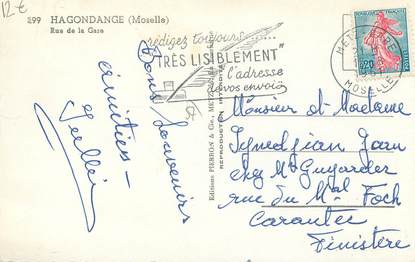 12 €
299 HAGONDANGE (Moselle)
Rue de la Gare
rédigez toujours.....
"TRÈS LISIBLEMENT"
l'adresse
de vos envois
Bons Souvenirs
Amitiés
Editions PIERRON & Cie, METZ
REPRODUCTION INTERDITE
METZ
MOSELLE
0,20
Monsieur et Madame
Jean
chez Mr Guyarder
rue du Mal Foch
Carantec
Finistère